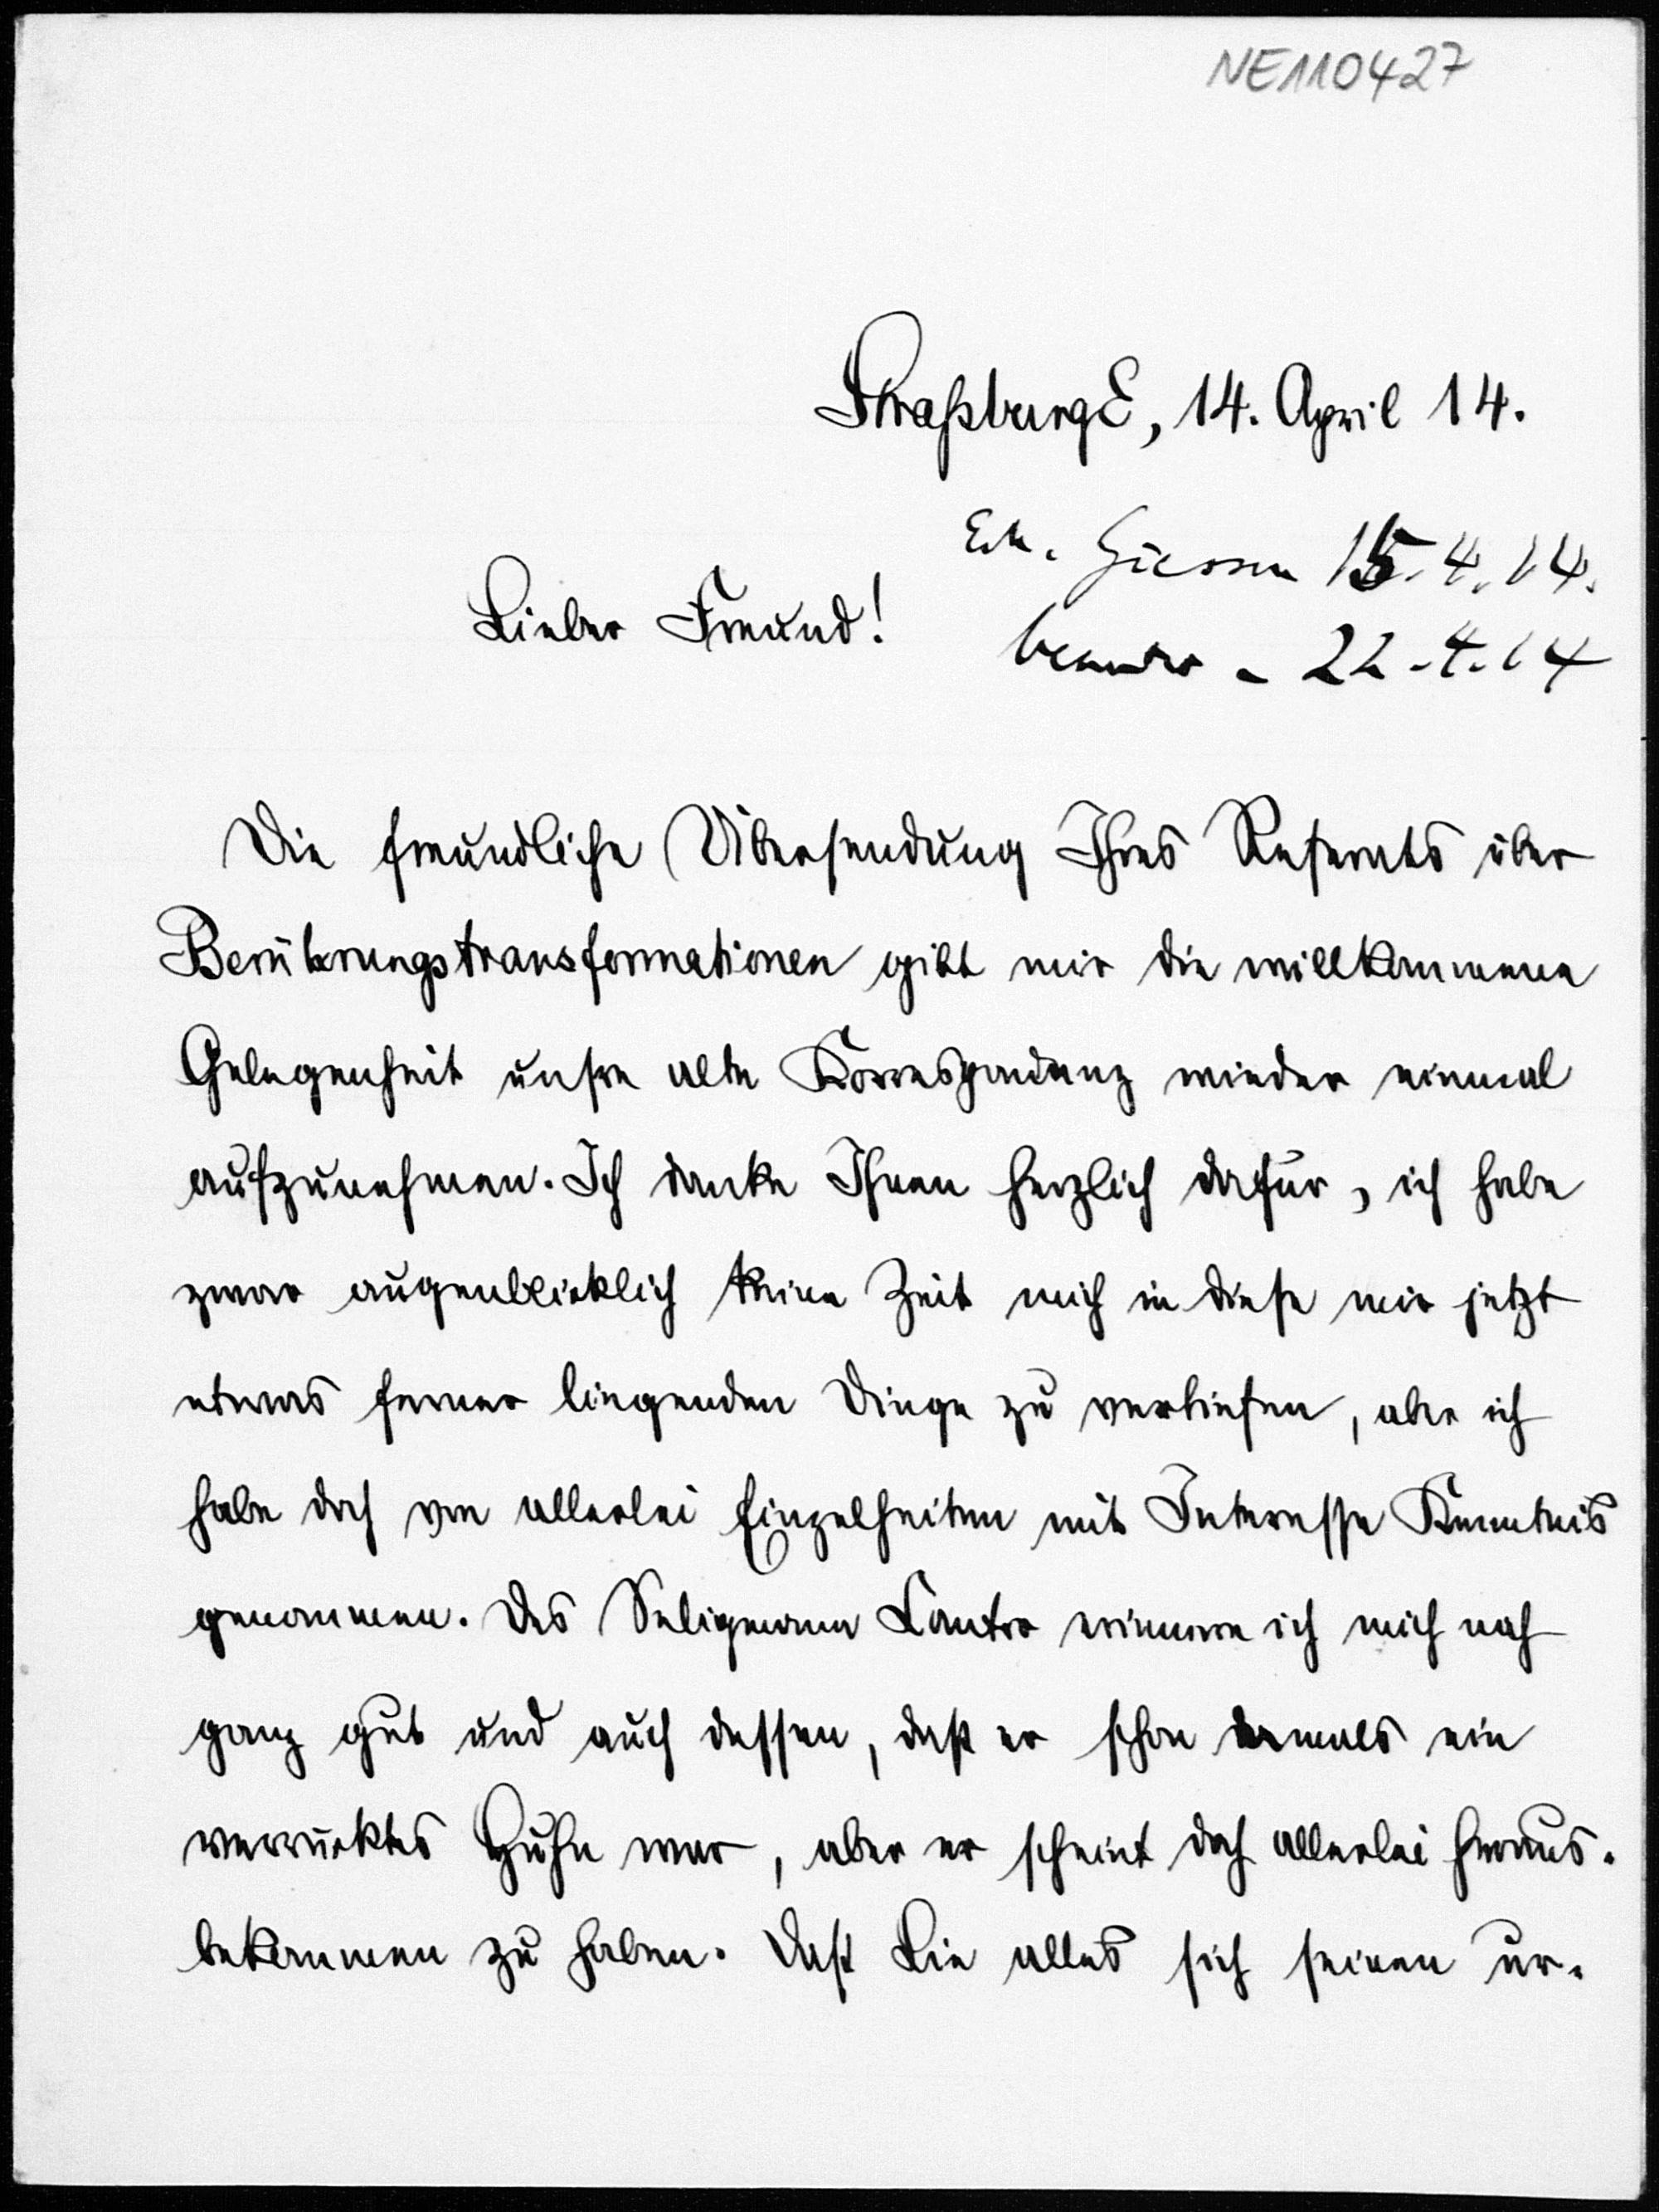 NE110427
Straßburg E, 14. April 14.
Erh. Giessen 15.4.14.
beantw. - 22.4.14
Lieber Freund!
Die freundliche Übersendung Ihres Referats über
Berührungstransformationen gibt mir die willkommene
Gelegenheit unsre alte Korrespondenz wieder einmal
aufzunehmen. Ich danke Ihnen herzlich dafür, ich habe
zwar augenblicklich keine Zeit mich in diese mir jetzt
etwas ferner liegenden Dinge zu vertiefen, aber ich
habe doch von allerlei Einzelheiten mit Interesse Kenntnis
genommen. Des Seligmann Kantor erinnere ich mich noch
ganz gut und auch dessen, daß er schon damals ein
verrücktes Huhn war, aber er scheint doch allerlei heraus-
bekommen zu haben. Daß Lie alles sich seinen ur-